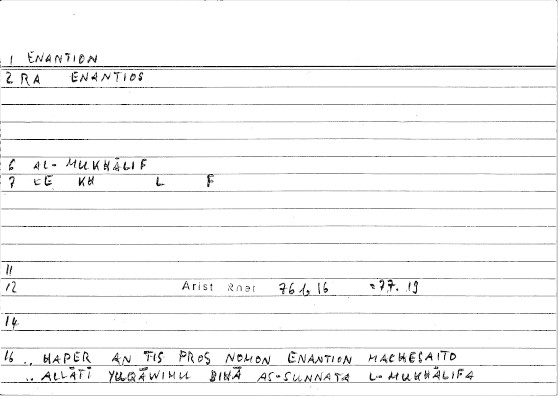 1 ENANTION
2 RA ENANTIOS
6 AL-MUKHĀLIF
7 EE KH L F
11
12 Arist Rhet 76b,16 =77.19
14
16 .. HAPER AN TIS PROS NOMON ENANTION MACHESAITO
.. ALLĀTĪ YUQĀWIMU BIHĀ AS-SUNNATA L-MUKHĀLIFA